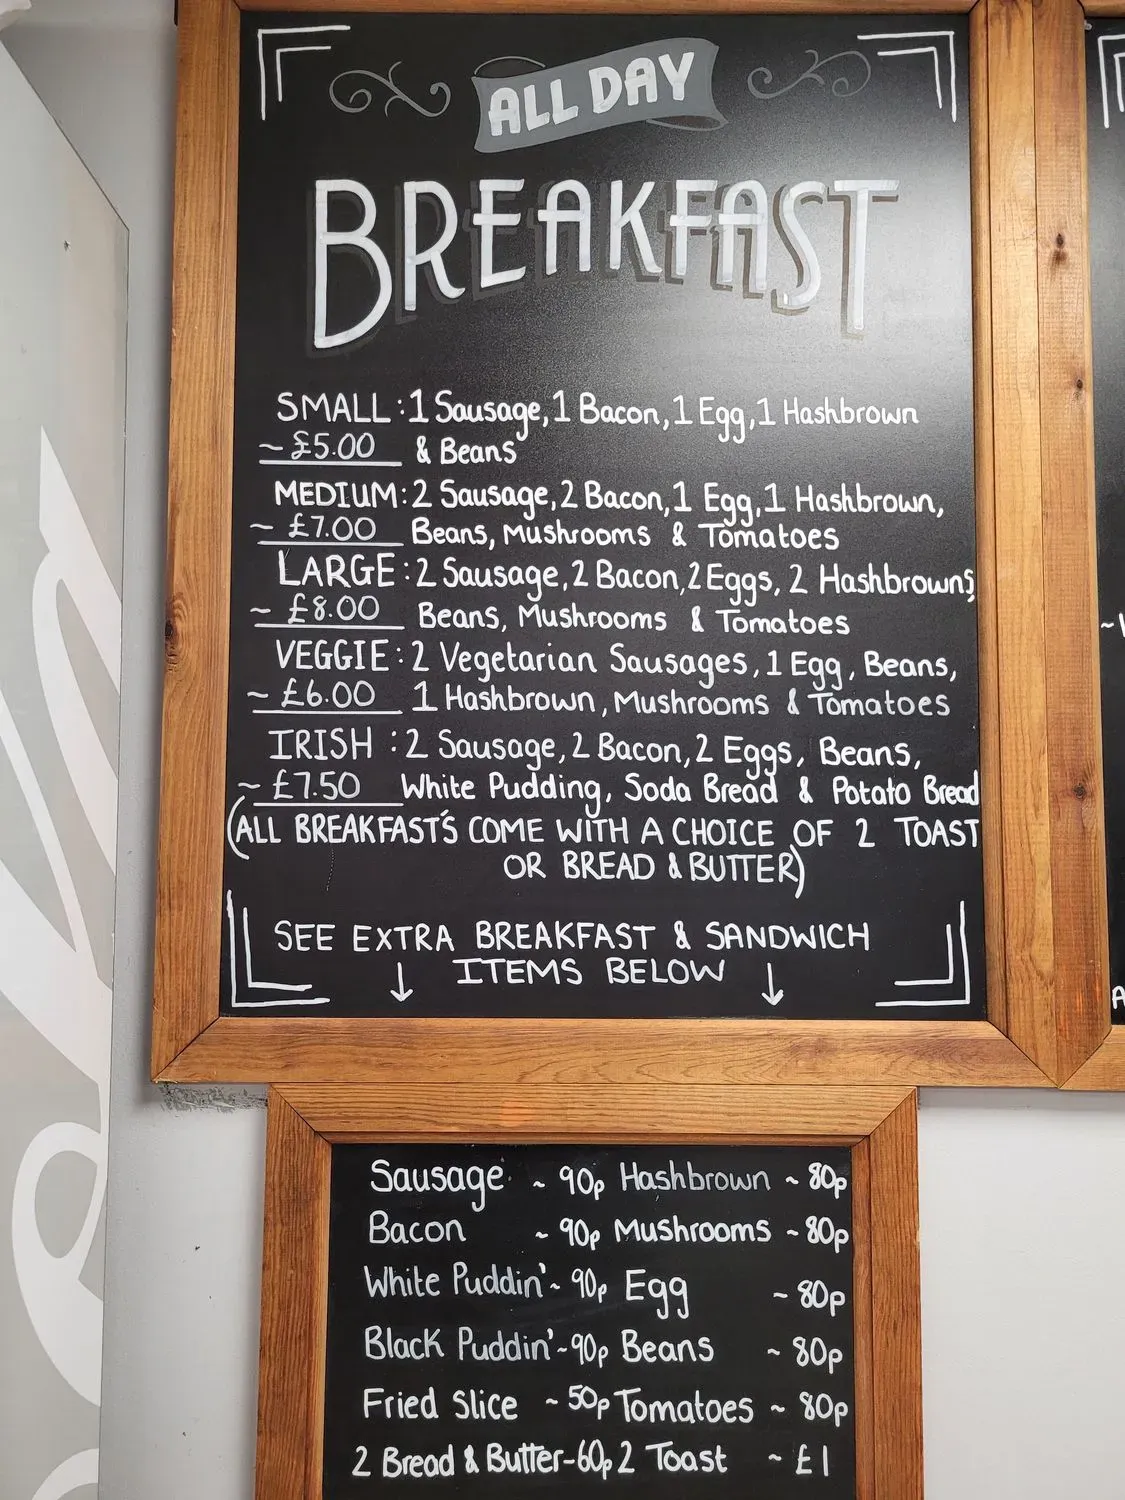 ALL DAY
BREAKFAST
SMALL : 1 Sausage, 1 Bacon, 1 Egg, 1 Hashbrown
~ £5.00 & Beans
MEDIUM : 2 Sausage, 2 Bacon, 1 Egg, 1 Hashbrown,
~ £7.00 Beans, Mushrooms & Tomatoes
LARGE : 2 Sausage, 2 Bacon, 2 Eggs, 2 Hashbrowns,
~ £8.00 Beans, Mushrooms & Tomatoes
VEGGIE : 2 Vegetarian Sausages, 1 Egg, Beans,
~ £6.00 1 Hashbrown, Mushrooms & Tomatoes
IRISH : 2 Sausage, 2 Bacon, 2 Eggs, Beans,
~ £7.50 White Pudding, Soda Bread & Potato Bread
(ALL BREAKFAST'S COME WITH A CHOICE OF 2 TOAST
OR BREAD & BUTTER)
SEE EXTRA BREAKFAST & SANDWICH
↓ ITEMS BELOW ↓
Sausage ~ 90p Hashbrown ~ 80p
Bacon ~ 90p Mushrooms ~ 80p
White Puddin' ~ 90p Egg ~ 80p
Black Puddin' ~ 90p Beans ~ 80p
Fried Slice ~ 50p Tomatoes ~ 80p
2 Bread & Butter - 60p 2 Toast ~ £1